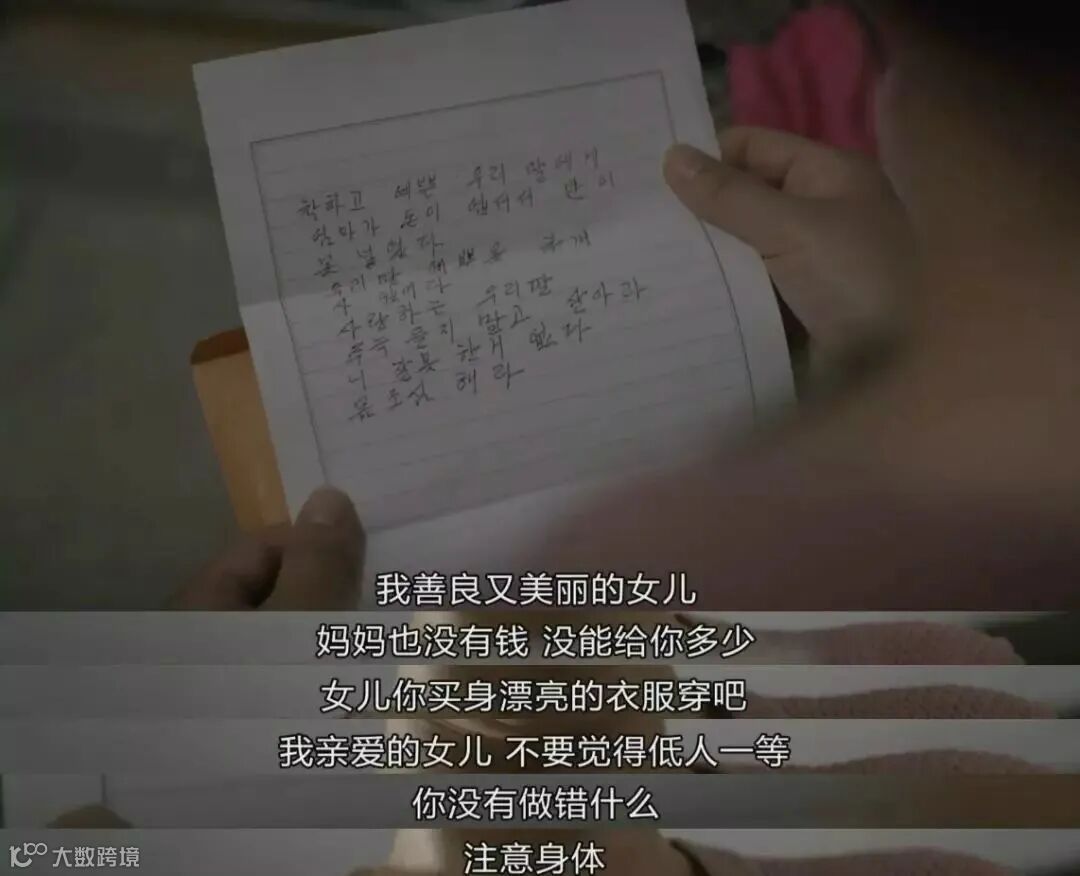 착하고 예쁜 우리 딸에게
엄마가 돈이 업서서 만이
못
우리딸 예쁜옷
사랑하는 우리딸
주눅 들지 말고 살아라
니 잘못 한거 없다
몸조심 해라
我善良又美丽的女儿
妈妈也没有钱 没能给你多少
女儿你买身漂亮的衣服穿吧
我亲爱的女儿 不要觉得低人一等
你没有做错什么
注意身体
大数跨境